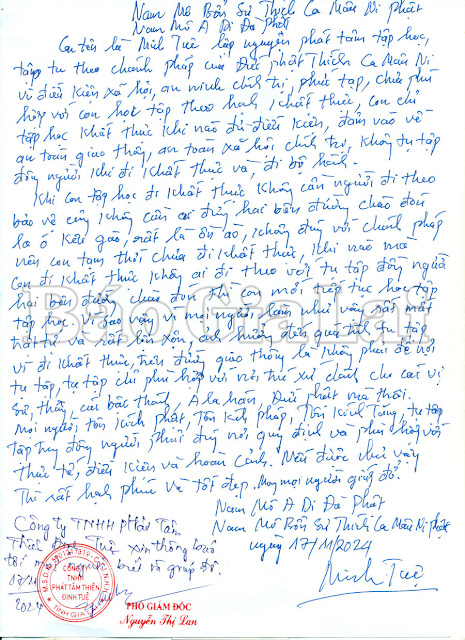 Nam Mô Bổn Sư Thích Ca Mâu Ni phật
Nam Mô A Di Đà Phật
Con tên là Minh Tuệ lập nguyện phát tâm tập học,
tập tu theo chánh pháp của Đức phật Thích Ca Mâu Ni
vì điều kiện xã hội, an ninh chính trị, phức tạp, chưa phù
hợp với con học tập theo hạnh khất thực, con chỉ
tập học khất thực khi nào đủ điều kiện, đảm bảo về
an toàn giao thông, an toàn xã hội chính trị, không tụ tập
đông người khi đi khất thực và đi bộ hành.
Khi con tập học đi khất thực không cần người đi theo
bảo vệ cũng không cần ai đứng hai bên đường chào đón
la ó kêu gào, rất là ồn ào, không đúng với chánh pháp
nên con tạm thời chưa đi khất thực, khi nào mà
con đi khất thực không ai đi theo với tụ tập đông người
hai bên đường chào đón thì con mới tiếp tục học tập
tập học. vì sao vậy vì mọi người làm như vậy rất mất
trật tự và rất lộn xộn, ảnh hưởng đến quá trình tu tập
vì đi khất thực, trên đường giao thông là không phải để nơi
tụ tập, tụ tập chỉ phù hợp với nơi trú xứ dành cho các vị
Sư, thầy, các bậc thánh, A la hán, Đức phật mà thôi.
Mọi người tôn kính phật, Tôn kính pháp, Tôn kính Tăng, tụ tập
tập trung đông người, phải đúng nơi quy định và phù hợp với
thực tế, điều kiện và hoàn cảnh. Nếu được như vậy
Thì rất hạnh phúc và tốt đẹp. Mong mọi người giúp đỡ.
Nam Mô A Di Đà Phật
Nam Mô Bổn Sư Thích Ca Mâu Ni phật
ngày 17/11/2024
Minh Tuệ
Công ty TNHH Phát Tâm
Thiện Định Tuệ xin thông báo
tới mọi người biết và giúp đỡ.
17/11
2024
CÔNG TY
TNHH
PHÁT TÂM THIỆN
ĐỊNH TUỆ
PHÓ GIÁM ĐỐC
Nguyễn Thị Lan
Báo Gia Lai